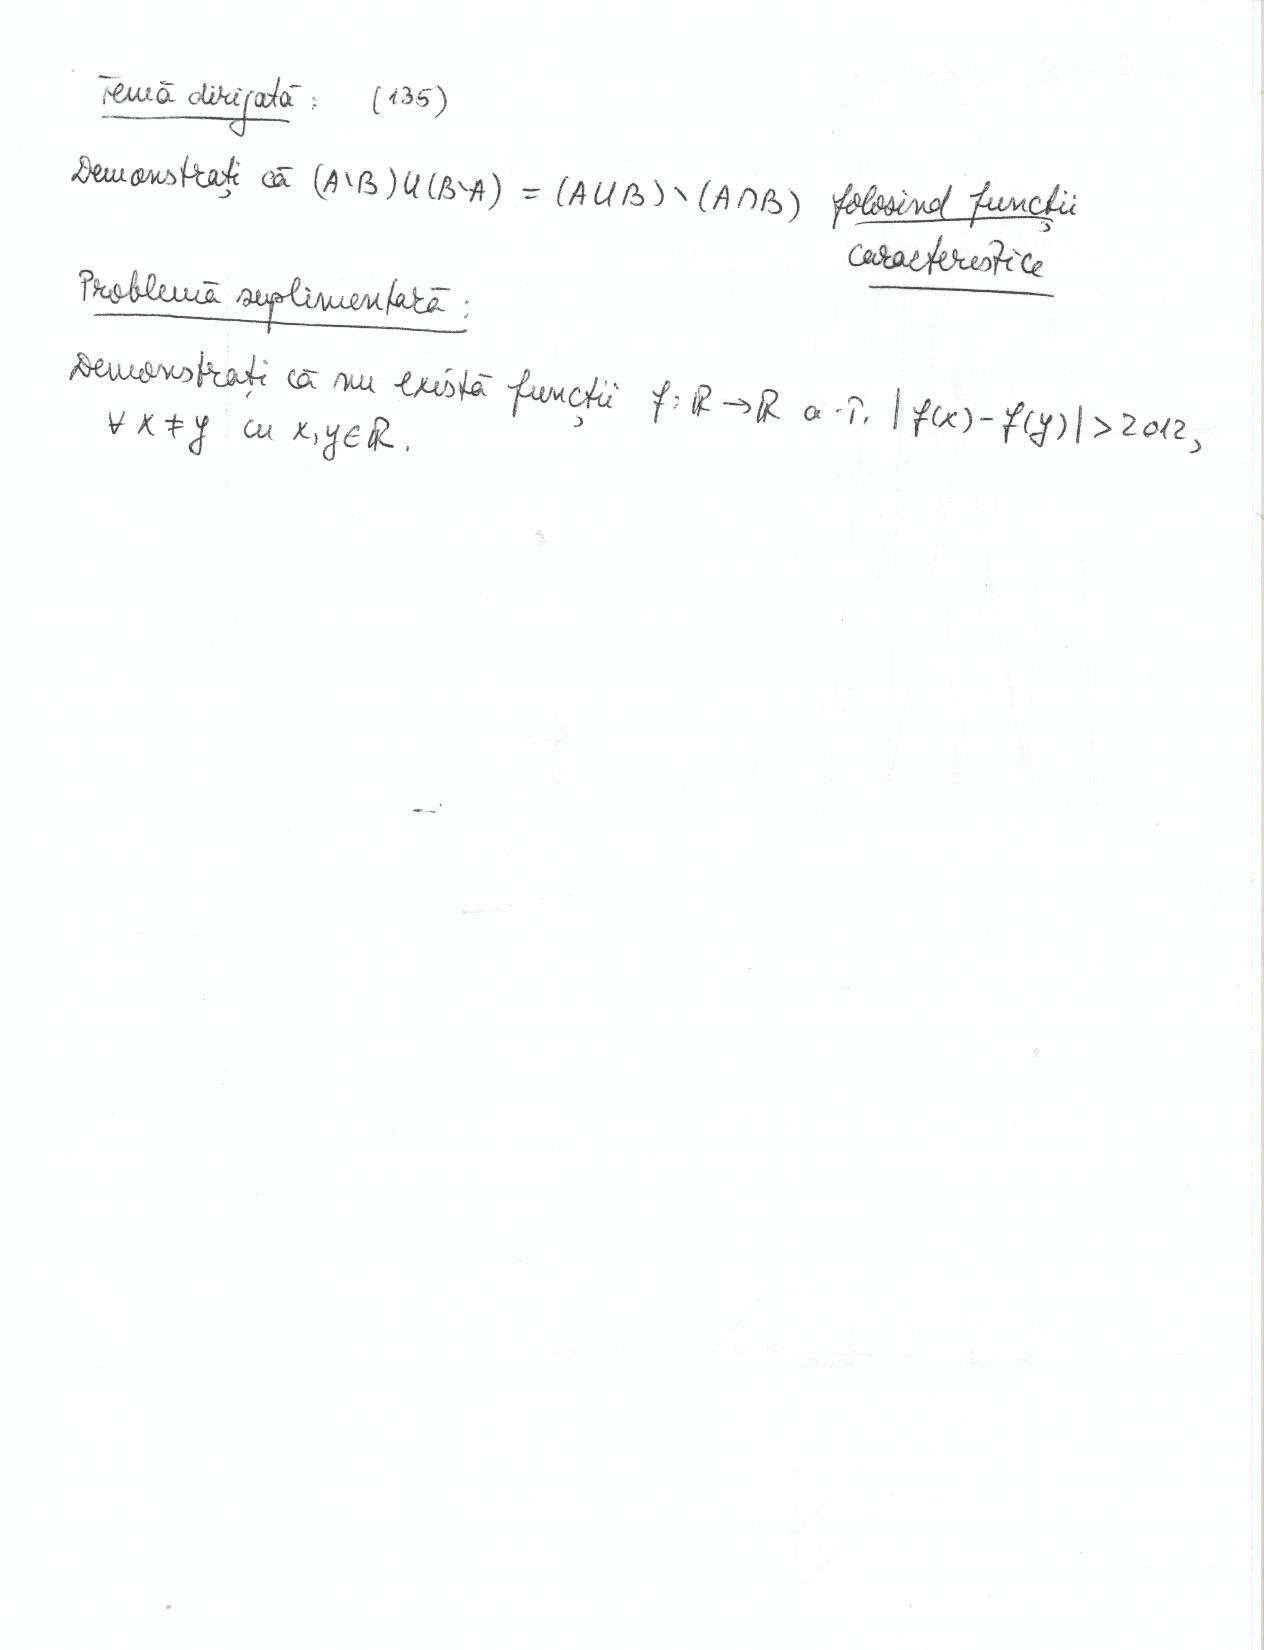 Temă dirijată: (135)
Demonstrați că (A\B)∪(B\A) = (A∪B)\(A∩B) folosind funcții
caracteristice
Problemă suplimentară:
Demonstrați că nu există funcții f:ℝ→ℝ a.î. |f(x)-f(y)|>2012,
∀ x≠y cu x,y∈ℝ.